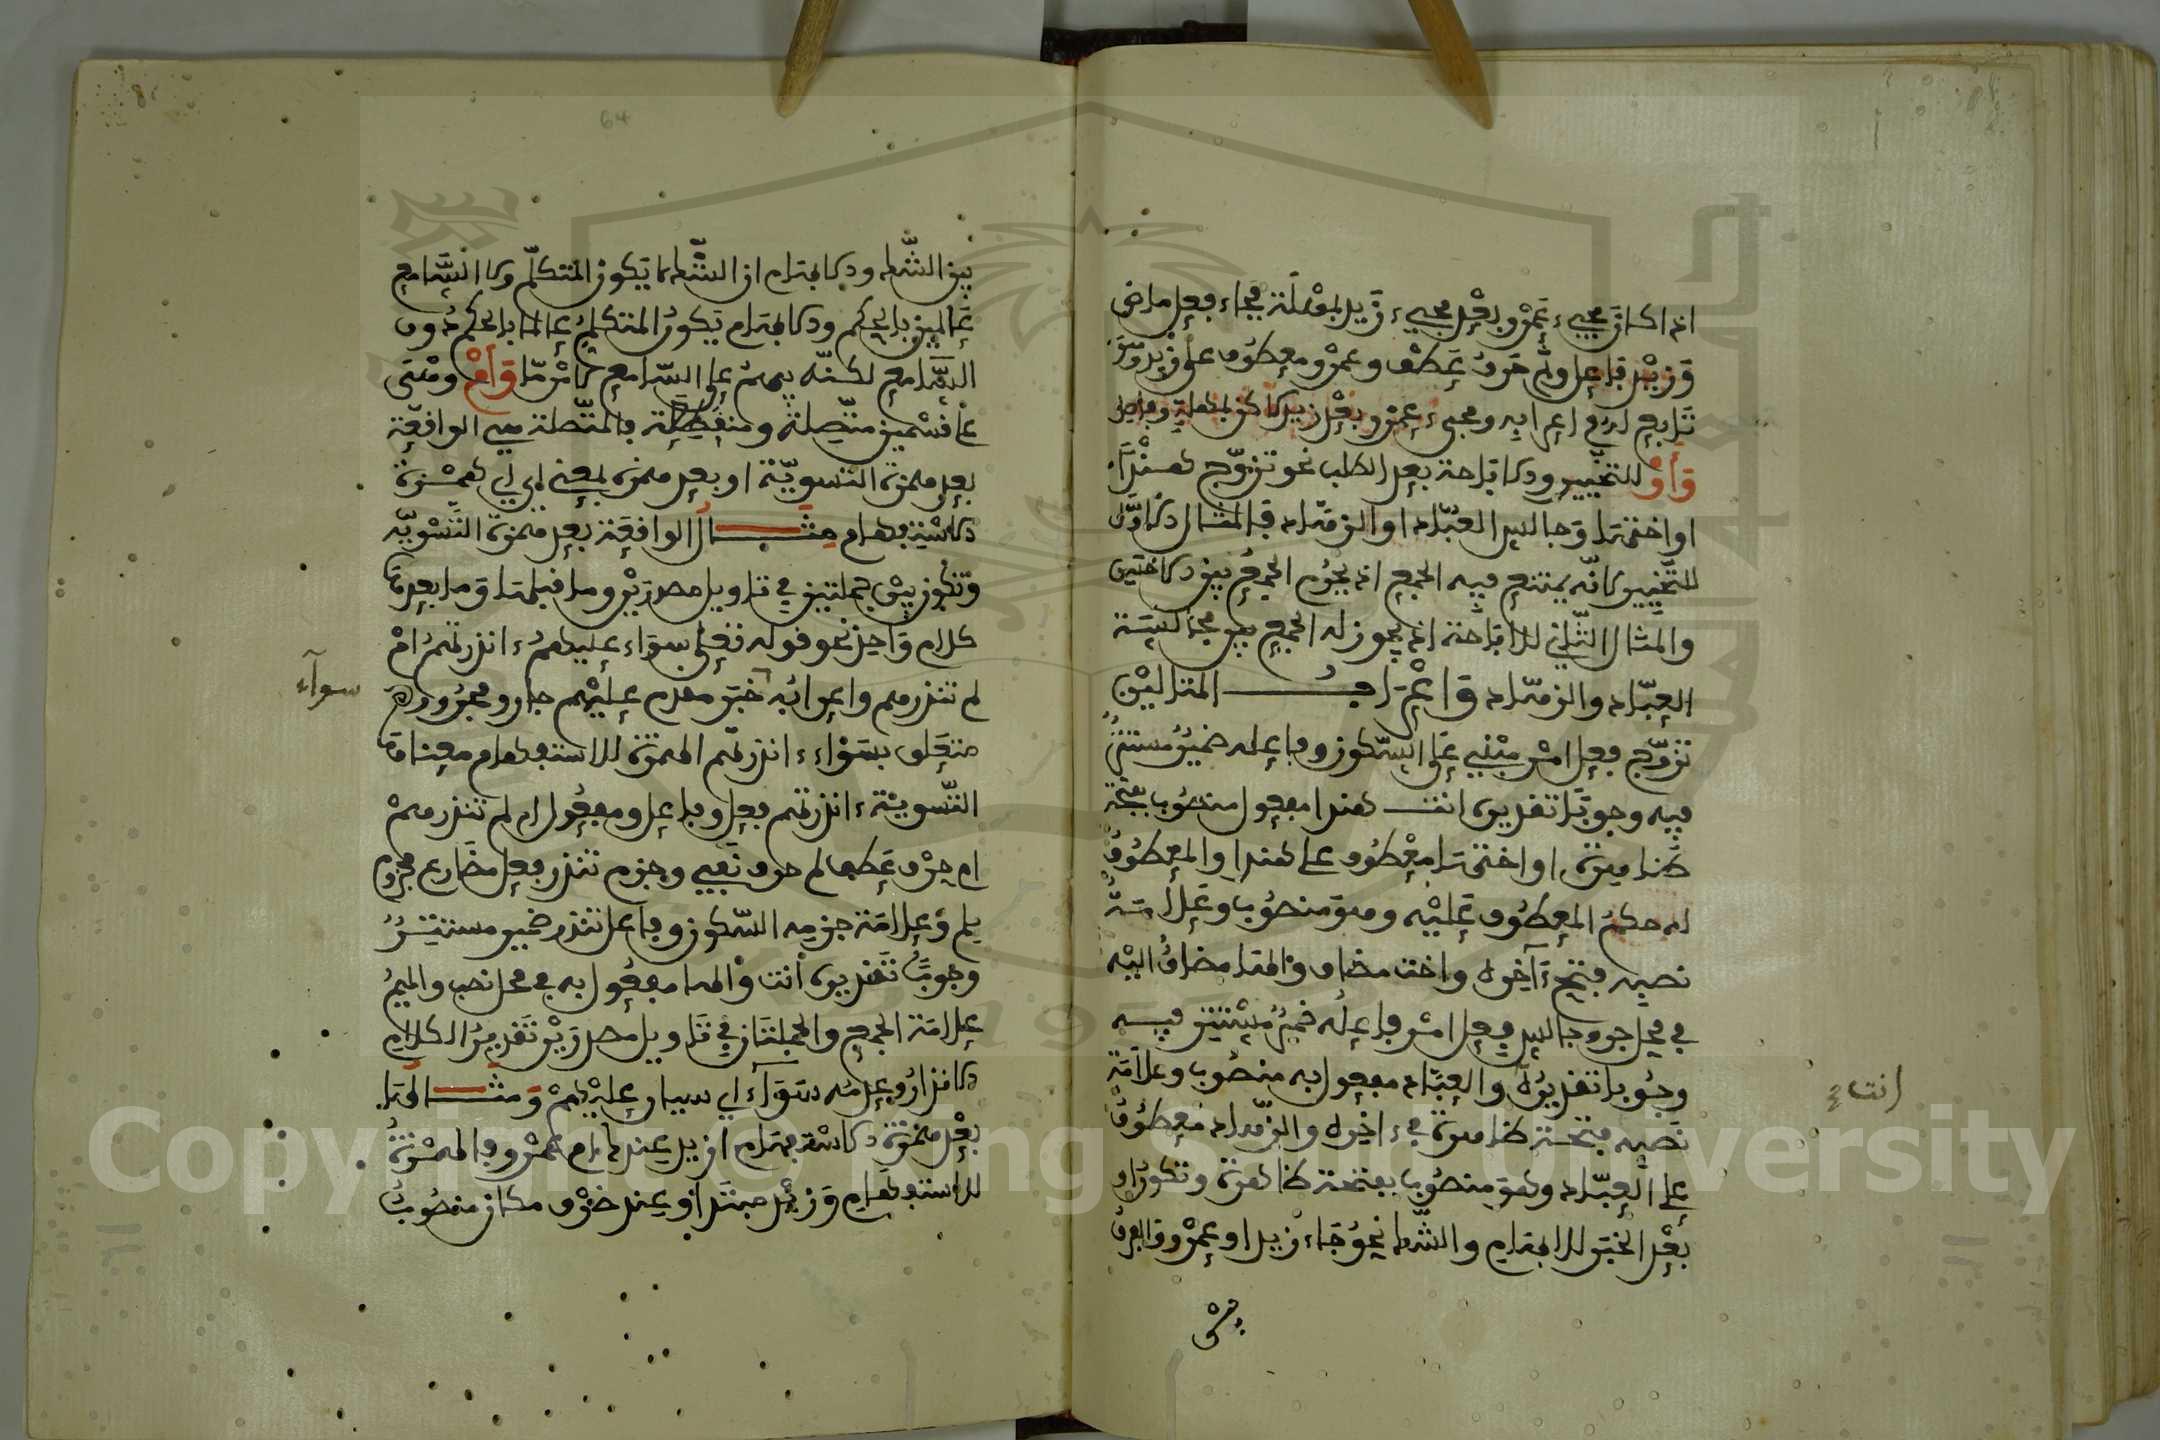 اذا كان مجيء عمرو بعد مجيء زيد بمهلة فجاء فعل ماض
وزيد فاعل وثم حرف عطف وعمرو معطوف على زيد
تابع له في اعرابه ومجيء عمرو بعد زيد كائن بالمهلة
وأو للتخيير والاباحة بعد الطلب نحو تزوج هندا
او اختها وجالس العباد او الزهاد فالمثال الاول
للتخيير لانه يمتنع فيه الجمع اذ يحرم الجمع بين الاختين
والمثال الثاني للاباحة اذ يجوز له الجمع بين مجالسة
العباد والزهاد واعراب المثالين
تزوج فعل امر مبني على السكون وفاعله ضمير مستتر
فيه وجوبا تقديره انت هندا مفعول منصوب بفتحة
ظاهرة او اختها معطوف على هندا والمعطوف
له حكم المعطوف عليه وهو منصوب وعلامة
نصبه فتح آخره واخت مضاف والهاء مضاف اليه
في محل جر وجالس فعل امر فاعله ضمير مستتر فيه
وجوبا تقديره والعباد مفعول به منصوب وعلامة
نصبه فتحة ظاهرة في اخره والزهاد معطوف
على العباد وهو منصوب بفتحة ظاهرة وتكون او
بعد الخبر للابهام والشك نحو جاء زيد او عمرو والفرق
بين
انت صح
64
بين الشك والابهام ان الشك ما يكون المتكلم والسامع
عالمين بالحكم والابهام يكون المتكلم عالما بالحكم دون
السامع لكنه يبهم على السامع وأم وهي
على قسمين متصلة ومنقطعة فالمتصلة هي الواقعة
بعد همزة التسوية او بعد همزة بمعنى اي اي همزة
الاستفهام مثال الواقعة بعد همزة التسوية
وتكون بين جملتين في تاويل مصدرين وما قبلها وما بعدها
كلام واحد نحو قوله تعلى سواء عليهم ءانذرتهم ام
لم تنذرهم واعرابه خبر مقدم عليهم جار ومجرور
متعلق بسواء ءانذرتهم الهمزة للاستفهام معناها
التسوية ءانذرتهم فعل وفاعل ومفعول ام لم تنذرهم
ام حرف عطف لم حرف نفي وجزم تنذر فعل مضارع مجزوم
بلم وعلامة جزمه السكون وفاعل تنذر ضمير مستتر
وجوبا تقديره أنت والهاء مفعول به في محل نصب والميم
علامة الجمع والجملتان في تاويل مصدرين تقدير الكلام
الانذار وعدمه سواء اي سيان عليهم ومثالها
بعد همزة الاستفهام ازيد عندك ام عمرو فالهمزة
للاستفهام وزيد مبتدا وعند ظرف مكان منصوب
سوآء